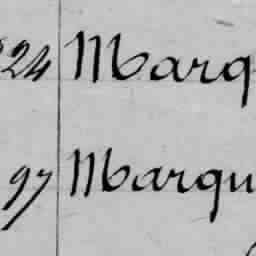 24 Marq
97 Marqu